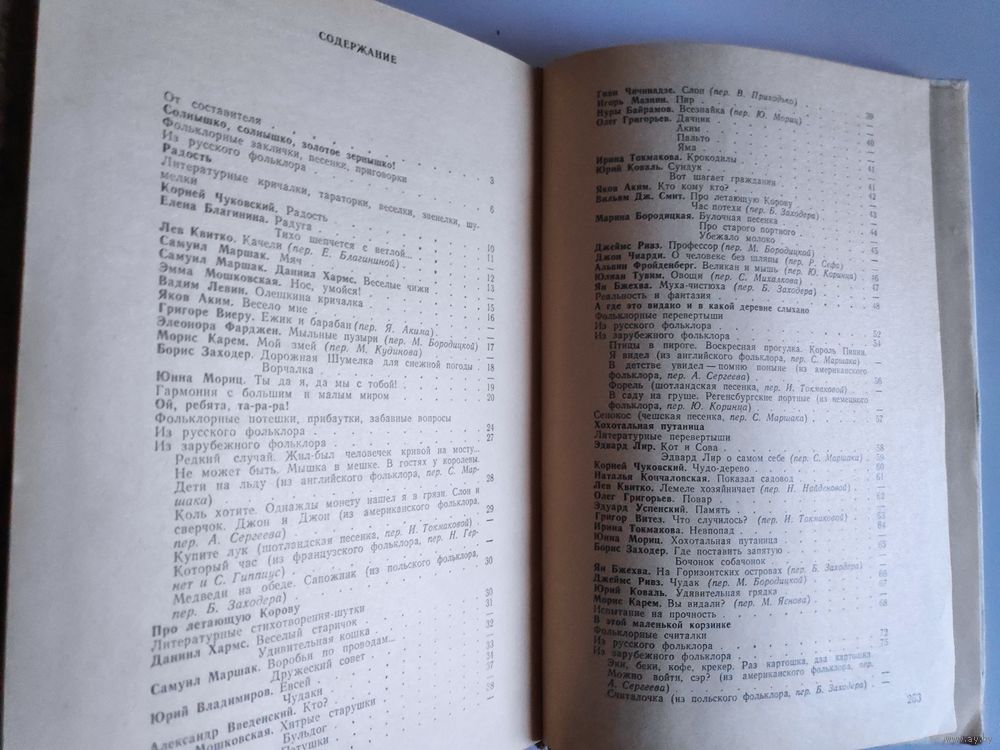 СОДЕРЖАНИЕ
От составителя
Солнышко, солнышко, золотое зернышко!
Фольклорные заклички, веселки, приговорки
Из русского фольклора . 3
Радость
Литературные кричалки, тараторки, веселки, звенелки, шу-
мелки 6
Корней Чуковский. Радость
Елена Благинина. Радуга 10
Тихо шепчется с ветлой... 11
Лев Квитко. Качели (пер. Е. Благининой) . —
Самуил Маршак. Мяч 12
Самуил Маршак. Даниил Хармс. Веселые чижи 13
Эмма Мошковская. Нос, умойся! —
Вадим Левин. Олешкина кричалка 15
Яков Аким. Весело мне 16
Григоре Виеру. Ежик и барабан (пер. Я. Акима) —
Элеонора Фарджен. Мыльные пузыри (пер. М. Бородицкой) 17
Морис Карем. Мой змей (пер. М. Кудинова) —
Борис Заходер. Дорожная Шумелка для снежной погоды 18
Ворчалка —
Юнна Мориц. Ты да я, да мы с тобой! 19
Гармония с большим и малым миром 20
Ой, ребята, та-ра-ра!
Фольклорные потешки, прибаутки, забавные вопросы
Из русского фольклора 24
Из зарубежного фольклора 27
Редкий случай. Жил-был человечек кривой на мосту...
Не может быть. Мышка в мешке. В гостях у королевы.
Дети на льду (из английского фольклора, пер. С. Мар-
шака) 28
Коль хотите. Однажды монету нашел я в грязи. Слон и
сверчок. Джон и Джон (из американского фольклора,
пер. А. Сергеева) 29
Купите лук (шотландская песенка, пер. И. Токмаковой) —
Который час (из французского фольклора, пер. Н. Гер-
нет и С. Гиппиус) 30
Медведи на обеде. Сапожник (из польского фольклора,
пер. Б. Заходера)
Про летающую Корову 30
Литературные стихотворения-шутки 31
Даниил Хармс. Веселый старичок 32
Удивительная кошка —
Самуил Маршак. Воробьи по проводам... 33
Дружеский совет 34
Юрий Владимиров. Евсей 37
Чудаки —
Александр Введенский. Кто? 38
Мошковская. Хитрые старушки
Бульдог
Петушки
Гиви Чичинадзе. Слон (пер. В. Приходько)
Игорь Мазнин. Пир
Нуры Байрамов. Всезнайка (пер. Ю. Мориц) 39
Олег Григорьев. Дачник —
Аким
Пальто 40
Яма —
Ирина Токмакова. Крокодилы —
Юрий Коваль. Сундук 41
Вот шагает гражданин —
Яков Аким. Кто кому кто? 41
Вильям Дж. Смит. Про летающую Корову 42
Час потехи (пер. Б. Заходера) 43
Марина Бородицкая. Булочная песенка —
Про старого портного 44
Убежало молоко 45
Джеймс Ривз. Профессор (пер. М. Бородицкой) —
Джон Чиарди. О человеке без шляпы (пер. Р. Сефа) —
Альвин Фройденберг. Великан и мышь (пер. Ю. Коринца) 46
Юлиан Тувим. Овощи (пер. С. Михалкова) 47
Ян Бжехва. Муха-чистюха (пер. Б. Заходера) —
Реальность и фантазия 48
А где это видано и в какой деревне слыхано
Фольклорные перевертыши
Из русского фольклора 52
Из зарубежного фольклора 54
Птицы в пироге. Воскресная прогулка. Король Пипин.
Я видел (из английского фольклора, пер. С. Маршака) —
В детстве увидел — помню поныне (из американского
фольклора, пер. А. Сергеева) 56
Форель (шотландская песенка, пер. И. Токмаковой) —
В саду на груше. Регенсбургские портные (из немецкого
фольклора, пер. Ю. Коринца) —
Сенокос (чешская песенка, пер. С. Маршака) 57
Хохотальная путаница
Литературные перевертыши
Эдвард Лир. Кот и Сова 58
Эдвард Лир о самом себе (пер. С. Маршака) 59
Корней Чуковский. Чудо-дерево 60
Наталья Кончаловская. Показал садовод 61
Лев Квитко. Лемеле хозяйничает (пер. Н. Найденовой) —
Олег Григорьев. Повар 62
Эдуард Успенский. Память —
Григор Витез. Что случилось? (пер. И. Токмаковой) 63
Ирина Токмакова. Невпопад 64
Юнна Мориц. Хохотальная путаница —
Борис Заходер. Где поставить запятую 65
Бочонок собачонок —
Ян Бжехва. На Горизонтских островах (пер. Б. Заходера) —
Джеймс Ривз. Чудак (пер. М. Бородицкой) 66
Юрий Коваль. Удивительная грядка 67
Морис Карем. Вы видали? (пер. М. Яснова) —
Испытание на прочность 68
В этой маленькой корзинке
Фольклорные считалки
Из русского фольклора 72
Из зарубежного фольклора 75
Эки, беки, кофе, крекер. Раз картошка, два картошка.
Можно войти, сэр? (из американского фольклора, пер.
А. Сергеева) —
Считалочка (из польского фольклора, пер. Б. Заходера) —
203
www.ay.by